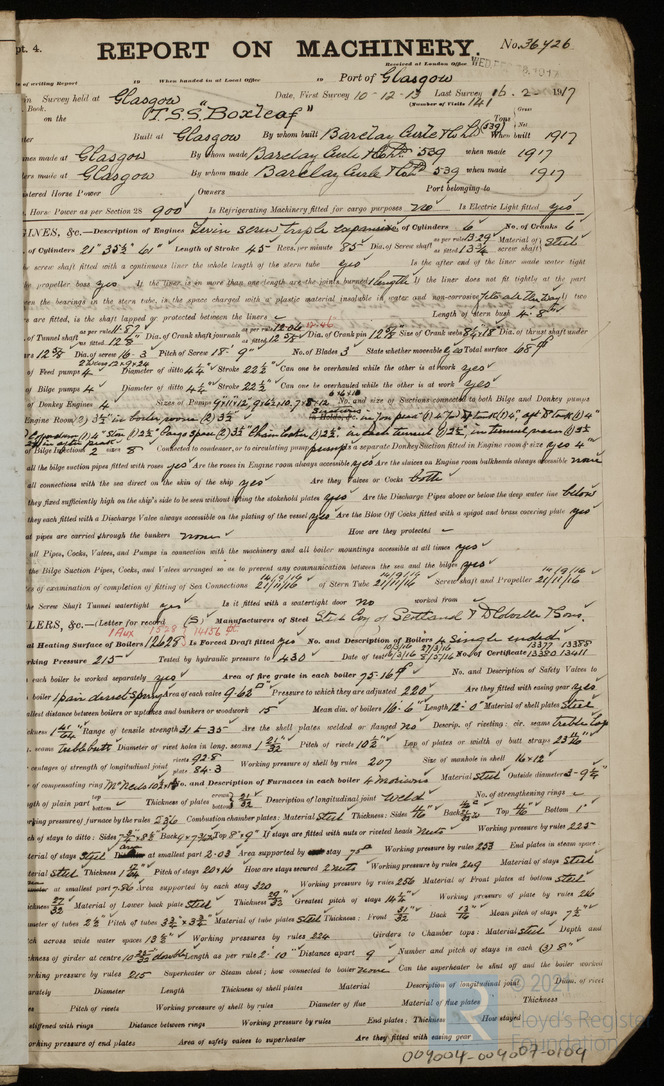 pt. 4. REPORT ON MACHINERY. No. 36426
Received at London Office WED. FEB. 28. 1917
of writing Report 19 When handed in at Local Office 19 Port of Glasgow
in Survey held at Glasgow Date, First Survey 10-12-13 Last Survey 16-2-1917
Book. (Number of Visits 141)
on the T.S.S. "Boxleaf" Tons Gross Net
Built at Glasgow By whom built Barclay Curle & Co Ld (539) When built 1917
ines made at Glasgow By whom made Barclay Curle & Co Ld 539 when made 1917
ers made at Glasgow By whom made Barclay Curle & Co Ld 539 when made 1917
stered Horse Power Owners Port belonging to
Horse Power as per Section 28 900 Is Refrigerating Machinery fitted for cargo purposes no Is Electric Light fitted yes
GINES, &c.—Description of Engines Twin screw triple expansion No. of Cylinders 6 No. of Cranks 6
of Cylinders 21" 35½" 61" Length of Stroke 45" Revs. per minute 85 Dia. of Screw shaft as per rule 13.29 as fitted 13¾ Material of screw shaft Steel
e screw shaft fitted with a continuous liner the whole length of the stern tube yes Is the after end of the liner made water tight
he propeller boss yes If the liner is in more than one length are the joints burned 1 length If the liner does not fit tightly at the part
een the bearings in the stern tube, is the space charged with a plastic material insoluble in water and non-corrosive fits all the way If two
rs are fitted, is the shaft lapped or protected between the liners Length of stern bush 4'-8"
of Tunnel shaft as per rule 11.87 as fitted Dia. of Crank shaft journals as per rule as fitted Dia. of Crank pin Size of Crank webs 8¼ x 18 Dia. of thrust shaft under
rs Dia. of screw 16-3 Pitch of Screw 18'-9" No. of Blades 3 State whether moveable Total surface 68
of Feed pumps 4 Diameter of ditto 4½ Stroke 22½" Can one be overhauled while the other is at work yes
of Bilge pumps 4 Diameter of ditto 4½ Stroke 22½" Can one be overhauled while the other is at work yes
of Donkey Engines 4 Sizes of Pumps No. and size of Suctions connected to both Bilge and Donkey pumps
Engine Room (2) 3½" in boiler room (2) 3½"
of Bilge Injections 2 sizes 8 Connected to condenser, or to circulating pump pump Is a separate Donkey Suction fitted in Engine room & size yes 4"
all the bilge suction pipes fitted with roses yes Are the roses in Engine room always accessible yes Are the sluices on Engine room bulkheads always accessible none
all connections with the sea direct on the skin of the ship yes Are they Valves or Cocks both
they fixed sufficiently high on the ship's side to be seen without lifting the stokehold plates yes Are the Discharge Pipes above or below the deep water line below
they each fitted with a Discharge Valve always accessible on the plating of the vessel yes Are the Blow Off Cocks fitted with a spigot and brass covering plate yes
at pipes are carried through the bunkers none How are they protected
all Pipes, Cocks, Valves, and Pumps in connection with the machinery and all boiler mountings accessible at all times yes
the Bilge Suction Pipes, Cocks, and Valves arranged so as to prevent any communication between the sea and the bilges yes
es of examination of completion of fitting of Sea Connections 14/9/16 21/11/16 of Stern Tube 14/9/16 21/11/16 Screw shaft and Propeller 14/9/16 21/11/16
he Screw Shaft Tunnel watertight yes Is it fitted with a watertight door no worked from
LERS, &c.—(Letter for record (S) Manufacturers of Steel Steel Coy of Scotland & D Colville & Sons.
1 Aux 1528 14156
al Heating Surface of Boilers 12628 Is Forced Draft fitted yes No. and Description of Boilers 4 Single ended
orking Pressure 215 Tested by hydraulic pressure to 430 Date of test 10/3/16 27/3/16 16/3/16 8/5/16 No. of Certificate 13377 13388 13380 13411
each boiler be worked separately yes Area of fire grate in each boiler 75.16 No. and Description of Safety Valves to
boiler 1 pair direct spring Area of each valve 9.62 Pressure to which they are adjusted 220 Are they fitted with easing gear yes
allest distance between boilers or uptakes and bunkers or woodwork 15 Mean dia. of boilers 16'-6" Length 12'-0" Material of shell plates Steel
ckness 1 41/64 Range of tensile strength 31 to 35 Are the shell plates welded or flanged no Descrip. of riveting: cir. seams treble lap
seams treble butt Diameter of rivet holes in long. seams 1 21/32 Pitch of rivets 10½ Lap of plates or width of butt straps
centages of strength of longitudinal joint rivets 92.8 plate 84.3 Working pressure of shell by rules 207 Size of manhole in shell 16 x 12
of compensating ring No. and Description of Furnaces in each boiler 4 Morisons Material Steel Outside diameter 3-9¼"
gth of plain part top bottom Thickness of plates crown bottom 21/32 Description of longitudinal joint Weld No. of strengthening rings
rking pressure of furnace by the rules 236 Combustion chamber plates: Material Steel Thickness: Sides 11/16 Back Top 11/16" Bottom 1"
ch of stays to ditto: Sides Back Top 8" x 9" If stays are fitted with nuts or riveted heads Nuts Working pressure by rules 225
terial of stays Steel area at smallest part 2.03 Area supported by each stay 75 Working pressure by rules 253 End plates in steam space:
terial Steel Thickness Pitch of stays 20 x 16 How are stays secured 2 nuts Working pressure by rules 249 Material of stays Steel
at smallest part 7.86 Area supported by each stay 320 Working pressure by rules 256 Material of Front plates at bottom Steel
ickness 27/32 Material of Lower back plate Steel Thickness 29/32 Greatest pitch of stays 14¼ Working pressure of plate by rules 216
meter of tubes 2½" Pitch of tubes 3¾ x 3¾ Material of tube plates Steel Thickness: Front 31/32 Back 13/16 Mean pitch of stays 7½"
tch across wide water spaces 13½" Working pressures by rules 224 Girders to Chamber tops: Material Steel Depth and
ckness of girder at centre Length as per rule 2'-10" Distance apart 9 Number and pitch of stays in each (3) 8"
orking pressure by rules 215 Superheater or Steam chest; how connected to boiler none Can the superheater be shut off and the boiler worked
arately Diameter Length Thickness of shell plates Material Description of longitudinal joint Diam. of rivet
es Pitch of rivets Working pressure of shell by rules Diameter of flue Material of flue plates Thickness
stiffened with rings Distance between rings Working pressure by rules End plates: Thickness How stayed
orking pressure of end plates Area of safety valves to superheater Are they fitted with easing gear
© 2021
Lloyd's Register
Foundation
004004-004007-0104